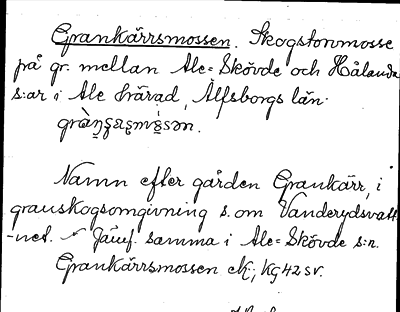 Grankärrsmossen. Skogstorvmosse
på gr. mellan Ale-Skövde och Hålanda
s:ar i Ale härad, Älfsborgs län.
Namn efter gården Grankärr, i
granskogsomgivning s. om Vanderydsvatt-
-net. Jämf. samma i Ale-Skövde s:n.
Grankärrsmossen ek, kg 42 sv.